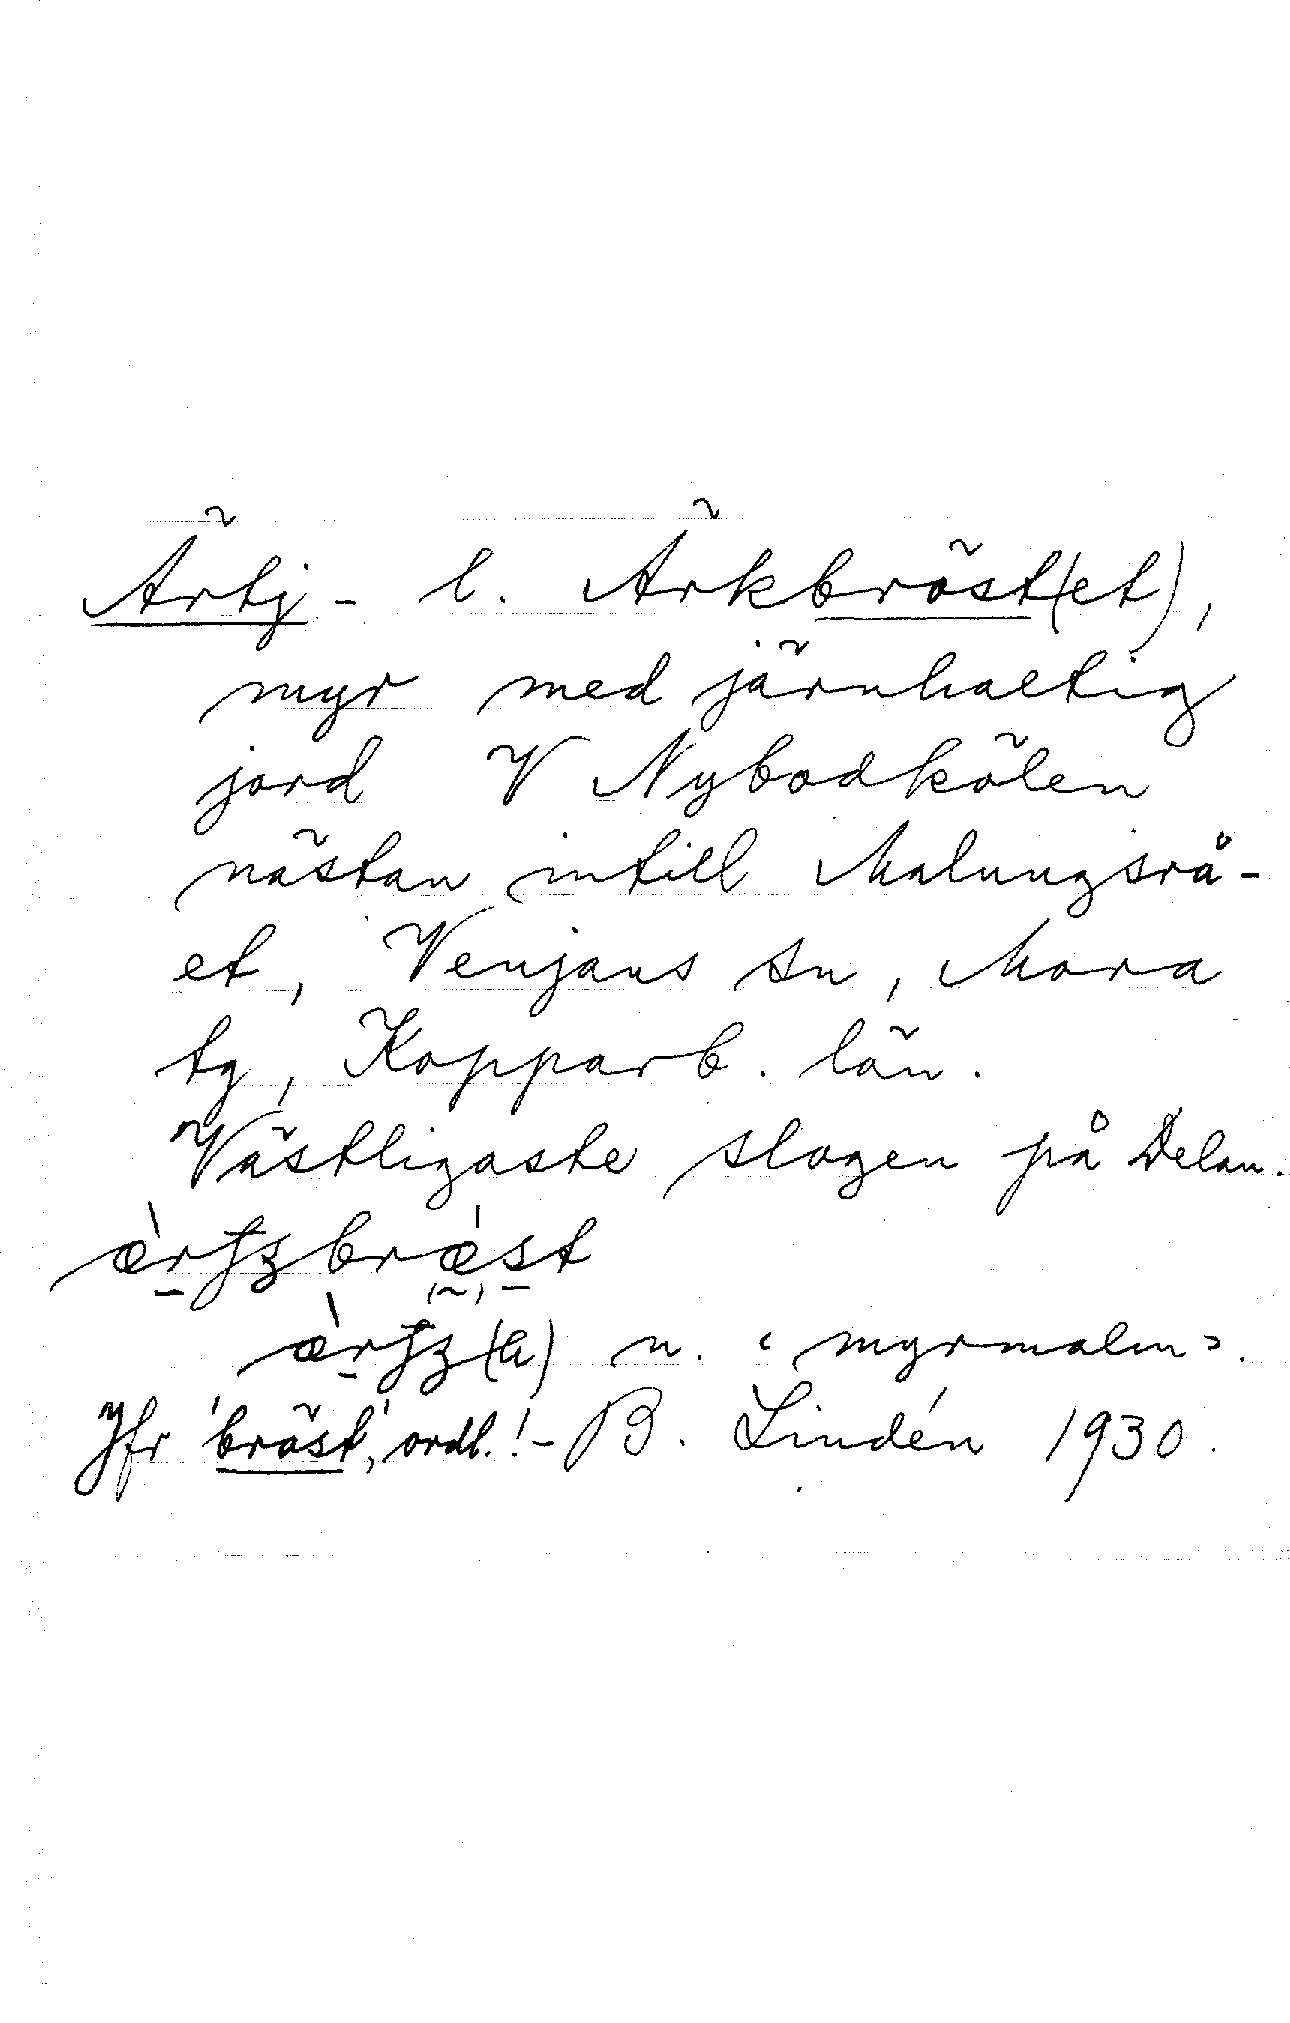 Ärtj- l. Ärkbröst(et),
myr med järnhaltig
jord V Nybodkölen
nästan intill Malungsrå-
et, Venjans sn, Mora
tg, Kopparb. län.
Västligaste slogen på Delan.
n. ‹ myrmalm ›.
Jfr 'bröst', ordl.! - B. Lindén 1930.